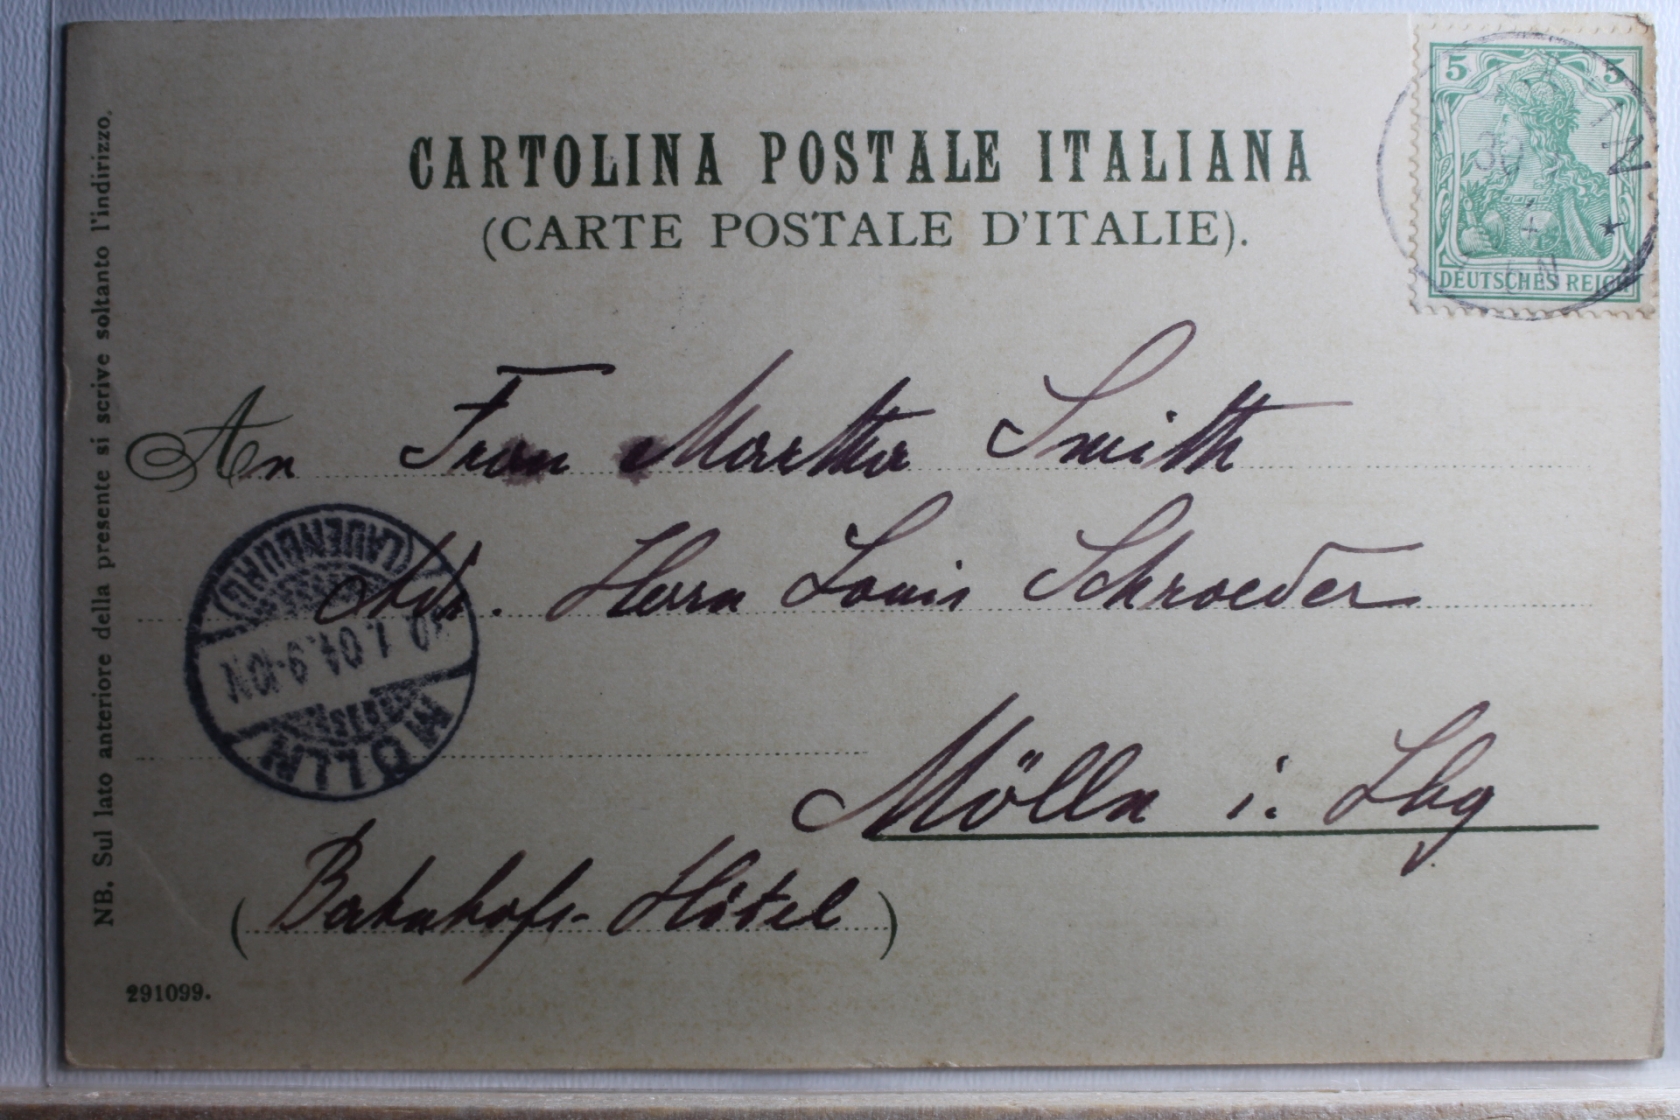 CARTOLINA POSTALE ITALIANA
(CARTE POSTALE D'ITALIE).
5 5
DEUTSCHES REICH
An Frau Martha Smith
Adr. Herrn Louis Schroeder
Mölln i. Lbg
(Bahnhofs-Hôtel)
MÖLLN
1.04.9-10N.
(LAUENBURG)
NB. Sul lato anteriore della presente si scrive soltanto l'indirizzo.
291099.